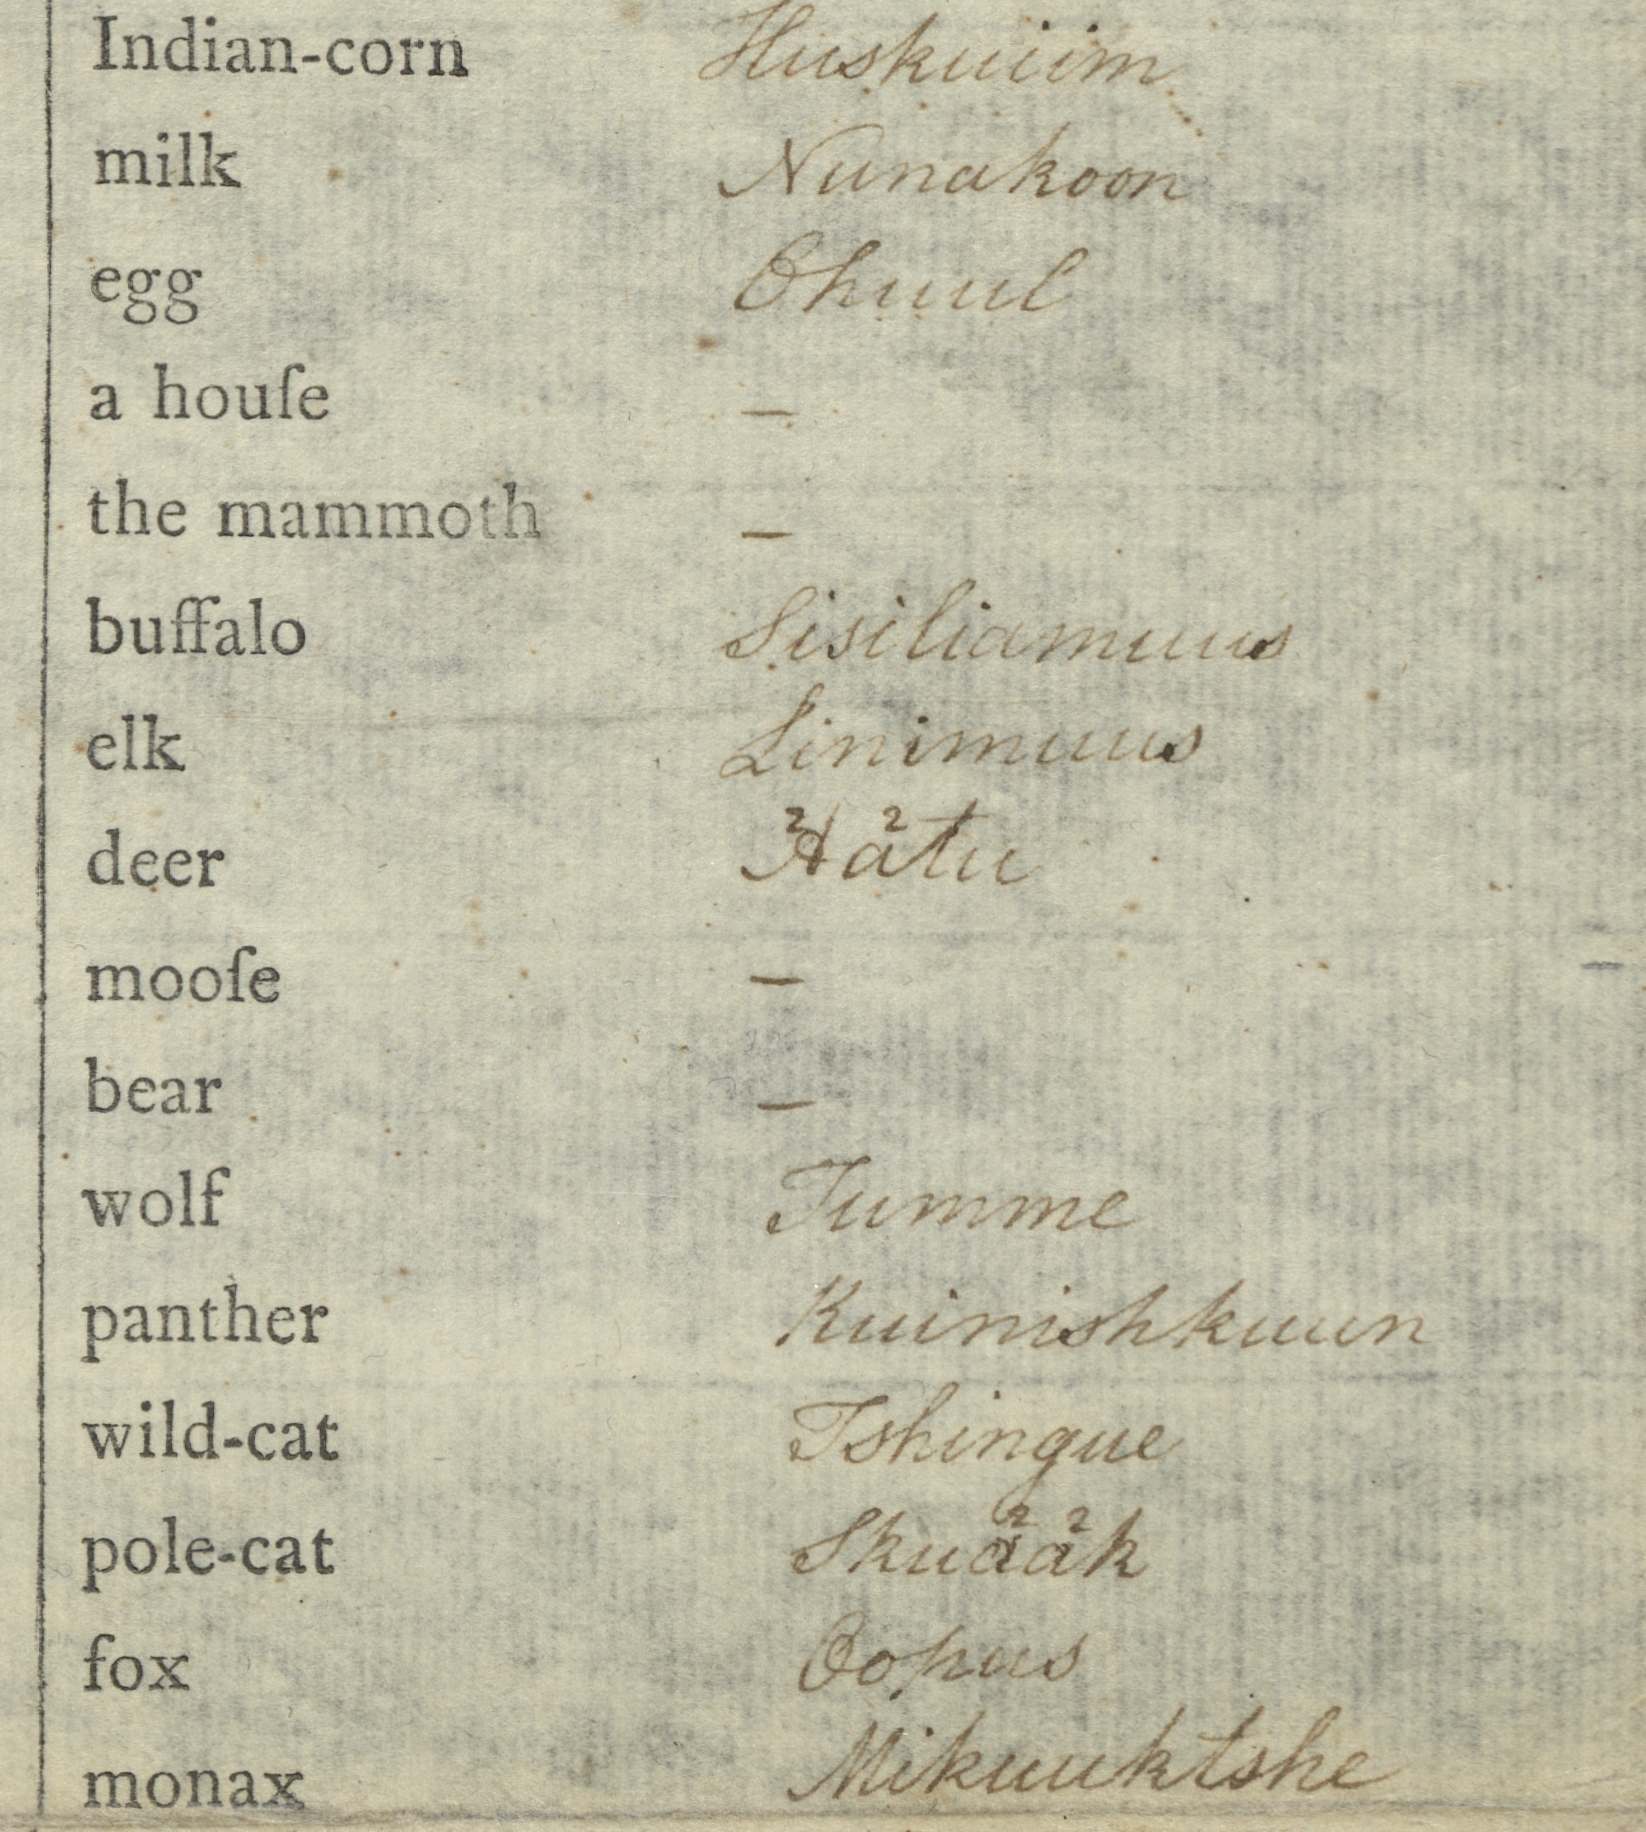 Indian-corn Huskuiim
milk Nunakoon
egg Ohuul
a houſe –
the mammoth –
buffalo Sisiliamuus
elk Linimuus
deer Hắtu
mooſe –
bear –
wolf Tumme
panther Kuinishkuun
wild-cat Tshingue
pole-cat Skuååk
fox Oopus
monax Mikuuktshe